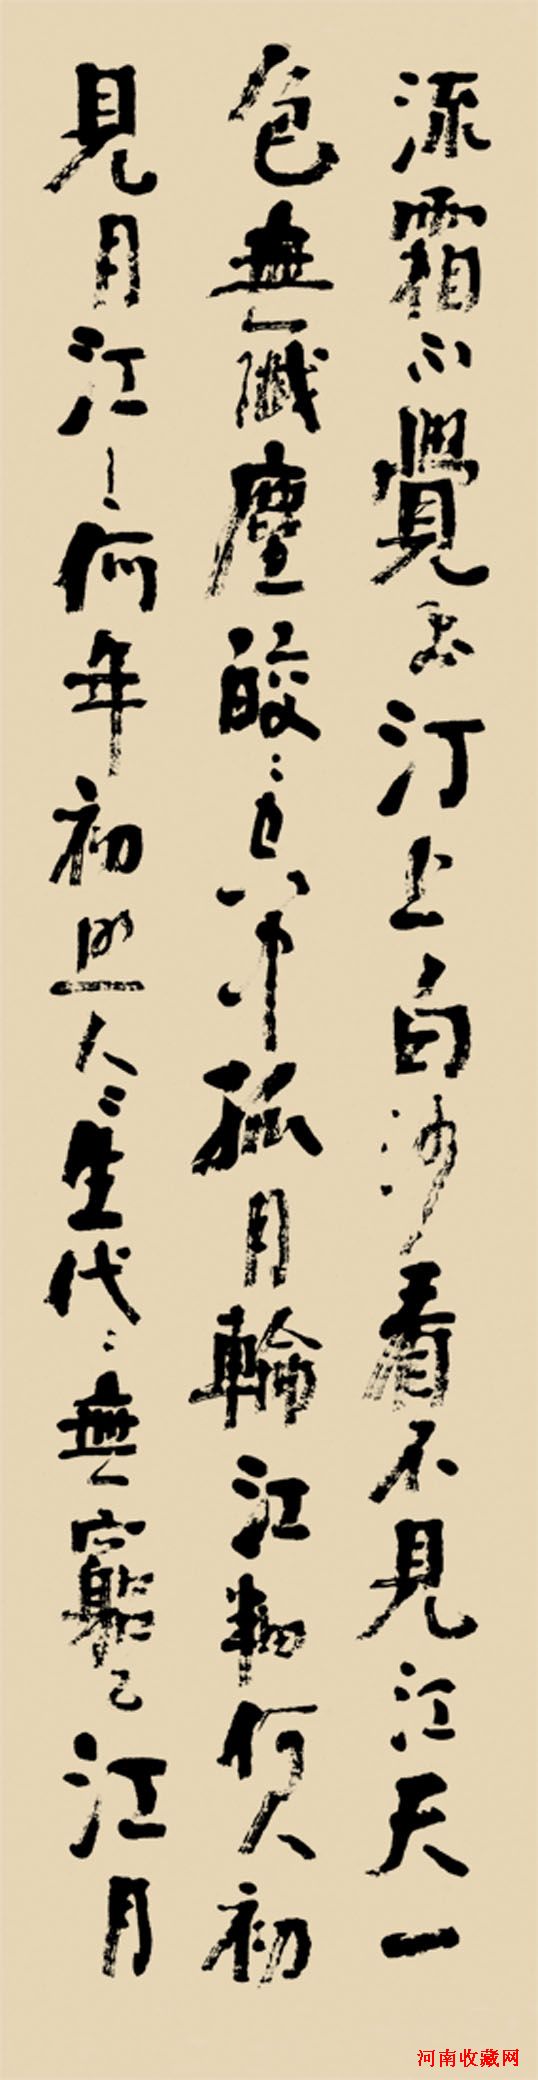 流霜不覺飛汀上白沙看不見江天一
色無纖塵皎〻空中孤月輪江畔何人初
見月江〻何年初照人〻生代〻無窮已江月
河南收藏网